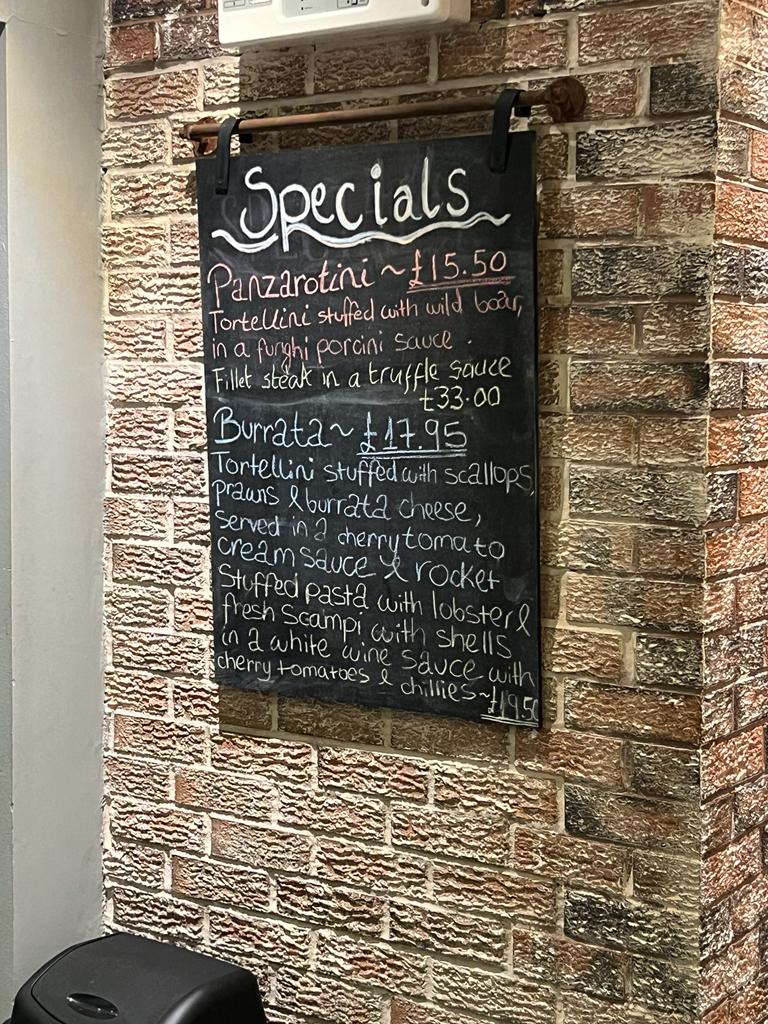 Specials
Panzarotini ~ £15.50
Tortellini stuffed with wild boar,
in a funghi porcini sauce.
Fillet steak in a truffle sauce
£33.00
Burrata ~ £17.95
Tortellini stuffed with scallops,
prawns & burrata cheese,
served in a cherry tomato
cream sauce & rocket
Stuffed pasta with lobster &
fresh scampi with shells
in a white wine sauce with
cherry tomatoes & chillies ~ £19.50